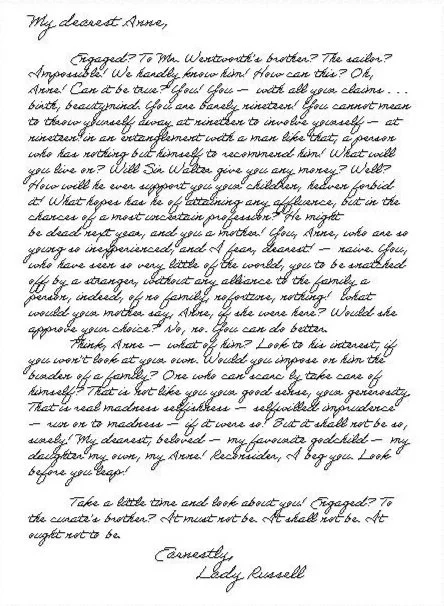 My dearest Anne,
Engaged? To Mr. Wentworth's brother? The sailor?
Impossible! We hardly know him! How can this? Oh,
Anne! Can it be true? You! You — with all your claims . . .
birth, beauty,mind. You are barely nineteen! You cannot mean
to throw yourself away at nineteen to involve yourself — at
nineteen in an entanglement with a man like that, a person
who has nothing but himself to recommend him! What will
you live on? Will Sir Walter give you any money? Well?
How will he ever support you your children, heaven forbid
it! What hopes has he of attaining any affluence, but in the
chances of a most uncertain profession? He might
be dead next year, and you a mother! You, Anne, who are so
young so inexperienced, and I fear, dearest! — naive. You,
who have seen so very little of the world, you to be snatched
off by a stranger, without any alliance to the family a
person, indeed, of no family, nofortune, nothing! What
would your mother say, Anne, if she were here? Would she
approve your choice? No, no. You can do better.
Think, Anne — what of him? Look to his interest, if
you won't look at your own. Would you impose on him the
burden of a family? One who can scarc ly take care of
himself? That is not like you your good sense, your generosity.
That is real madness selfishness — selfwilled imprudence
— run on to madness — if it were so! But it shall not be so,
surely! My dearest, beloved — my favourite godchild — my
daughter my own, my Anne! Reconsider, I beg you. Look
before you leap!
Take a little time and look about you! Engaged? To
the curate's brother? It must not be. It shall not be. It
ought not to be.
Earnestly,
Lady Russell